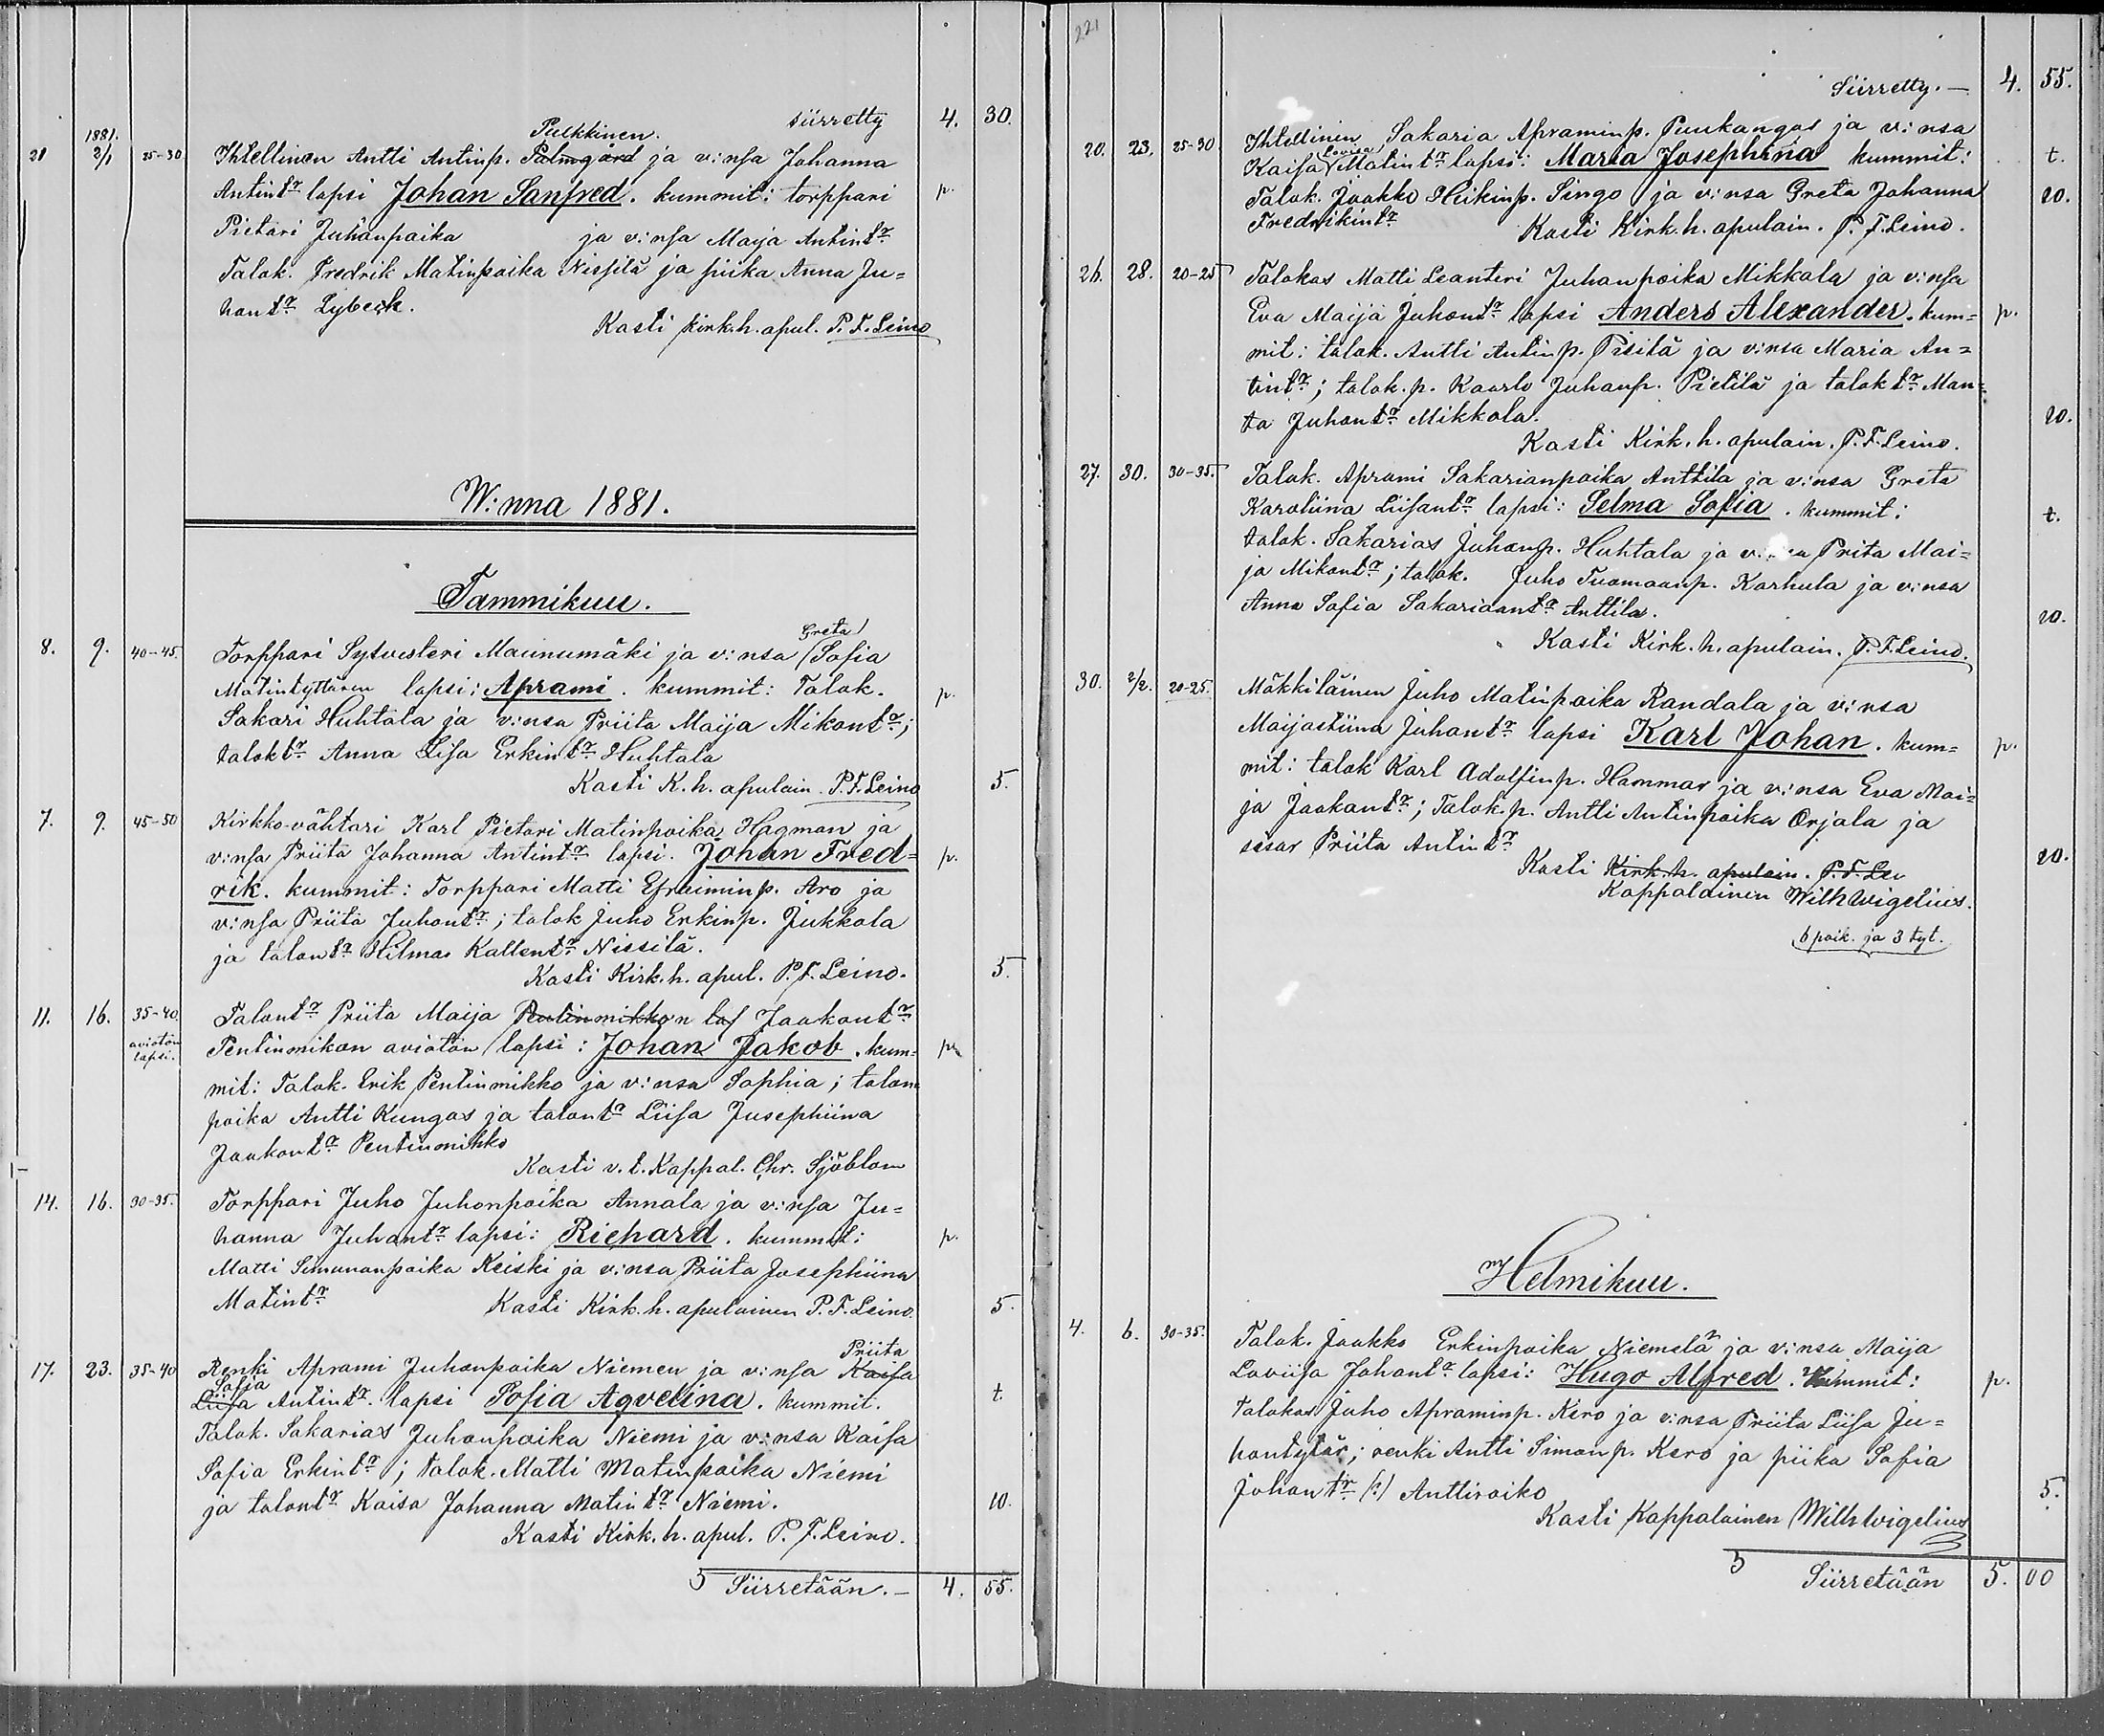 siirretty 4. 30.
1881.
Pulkkinen.
21 2/1 25-30 Ihtellinen Antti Antinp. Palmgård ja v:nsa Johanna
Antintr lapsi Johan Sanfred. kummit: torppari p.
Pietari Juhanpaika ja v:nsa Maija Antintr
Talok. Fredrik Matinpoika Nissilä ja piika Anna Ju=
hantr Lybeck.
Kasti kirk.h. apul. P. F. Leino
W:nna 1881.
Tammikuu.
Greta
8. 9. 40-45. Torppari Sylvesteri Maunumäki ja v:nsa Sofia
Matintyttären lapsi: Aprami. kummit: Talok. p.
Sakari Huhtala ja v:nsa Priita Maija Mikontr;
taloktr Anna Lisa Erkintr Huhtala
Kasti K. h. apulain. P. F. Leino 5.
7. 9. 45-50 Kirkko-vähtari Karl Pietari Matinpoika Hagman ja
v:nsa Priita Johanna Antintr lapsi. Johan Fred= p.
rik. kummit: Torppari Matti Efraiminp. Aro ja
v:nsa Priita Juhontr; talok Juho Erkinp. Jukkola
ja talontr Hilma Kallentr Nissilä.
Kasti Kirk. h. apul. P. F. Leino. 5.
11. 16. 35-40 Talontr Priita Maija Pentinmikkon las Jaakontr
aviotön
lapsi. Pentinmikon aviotön lapsi: Johan Jakob. kum= p.
mit: Talok. Erik Pentinmikko ja v:nsa Sophia; talon
poika Antti Kungas ja talontr Liisa Jusephiina
Jaakontr Pentinmikko
Kasti v. t. Kappal. Chr. Sjöblom
14. 16. 30-35. Torppari Juho Juhonpoika Annala ja v:nsa Ju=
hanna Juhantr lapsi: Richard. kummit: p.
Matti Simunanpoika Keiski ja v:nsa Priita Josephiina
Matintr Kasti Kirk. h. apulainen P. F. Leino. 5.
Priita
17. 23. 35-40 Renki Aprami Juhanpoika Niemen ja v:nsa Kaisa
Sofia
Liisa Antintr. lapsi Sofia Aqvelina. kummit. t.
Talok. Sakarias Juhanpoika Niemi ja v:nsa Kaisa
Sofia Erkintr; talok. Matti Matinpoika Niemi
ja talontr Kaisa Johanna Matintr Niemi. 10.
Kasti Kirk. h. apul. P. F. Leino.
Siirretään.- 4. 55.
221
Siirretty.- 4. 55.
20. 23. 25-30 Ihtellinen Sakaria Apraminp. Puukangas ja v:nsa
Lovisa
Kaisa Matintr lapsi: Maria Josephina kummit: t.
Talok. Jaakko Heikinp. Singo ja v:nsa Greta Johanna 20.
Fredrikintr Kasti Kirk. h. apulain. P. F. Leino.
26. 28. 20-25 Talokas Matti Leanteri Juhanpoika Mikkola ja v:nsa
Eva Maija Juhantr lapsi Anders Alexander. kum= p.
mit: talok. Antti Antinp. Pisilä ja v:nsa Maria An=
tintr; talok. p. Kaarlo Juhanp. Pietilä ja taloktr Man=
ta Juhontr Mikkola. 20.
Kasti Kirk. h. apulain. P. F. Leino.
27. 30. 30-35. Talok. Aprami Sakarianpoika Anttila ja v:nsa Greta
Karoliina Liisantr lapsi: Selma Sofia. kummit: t.
talok. Sakarias Juhanp. Huhtala ja v:nsa Prita Mai=
ja Mikontr; talok. Juho Tuomaanp. Karhula ja v:nsa
Anna Sofia Sakariaantr Anttila. 20.
Kasti Kirk. h. apulain. P. F. Leino.
30. 2/2. 20-25. Mökkiläinen Juho Matinpoika Randala ja v:nsa
Maijastiina Juhantr lapsi Karl Johan. kum= p.
mit: talok Karl Adolfinp. Hammar ja v:nsa Eva Mai=
ja Jaakantr; Talok. p. Antti Antinpoika Orjala ja
sisar Priita Antintr 20.
Kasti Kirk. h. apulain. P. F. Lei
Kappalainen Wilh Wigelius.
6 poik. ja 3 tyt.
Helmikuu.
4. 6. 30-35. Talok. Jaakko Erkinpoika Niemelä ja v:nsa Maija
Loviisa Johantr lapsi: Hugo Alfred. Kummit: p.
talokas Juho Apraminp. Kero ja v:nsa Priita Liisa Ju=
hontytär; renki Antti Simonp. Kero ja piika Sofia
Johantr (?) Anttiroiko 5.
Kasti Kappalainen Wilh Wigelius
Siirretään 5. 00